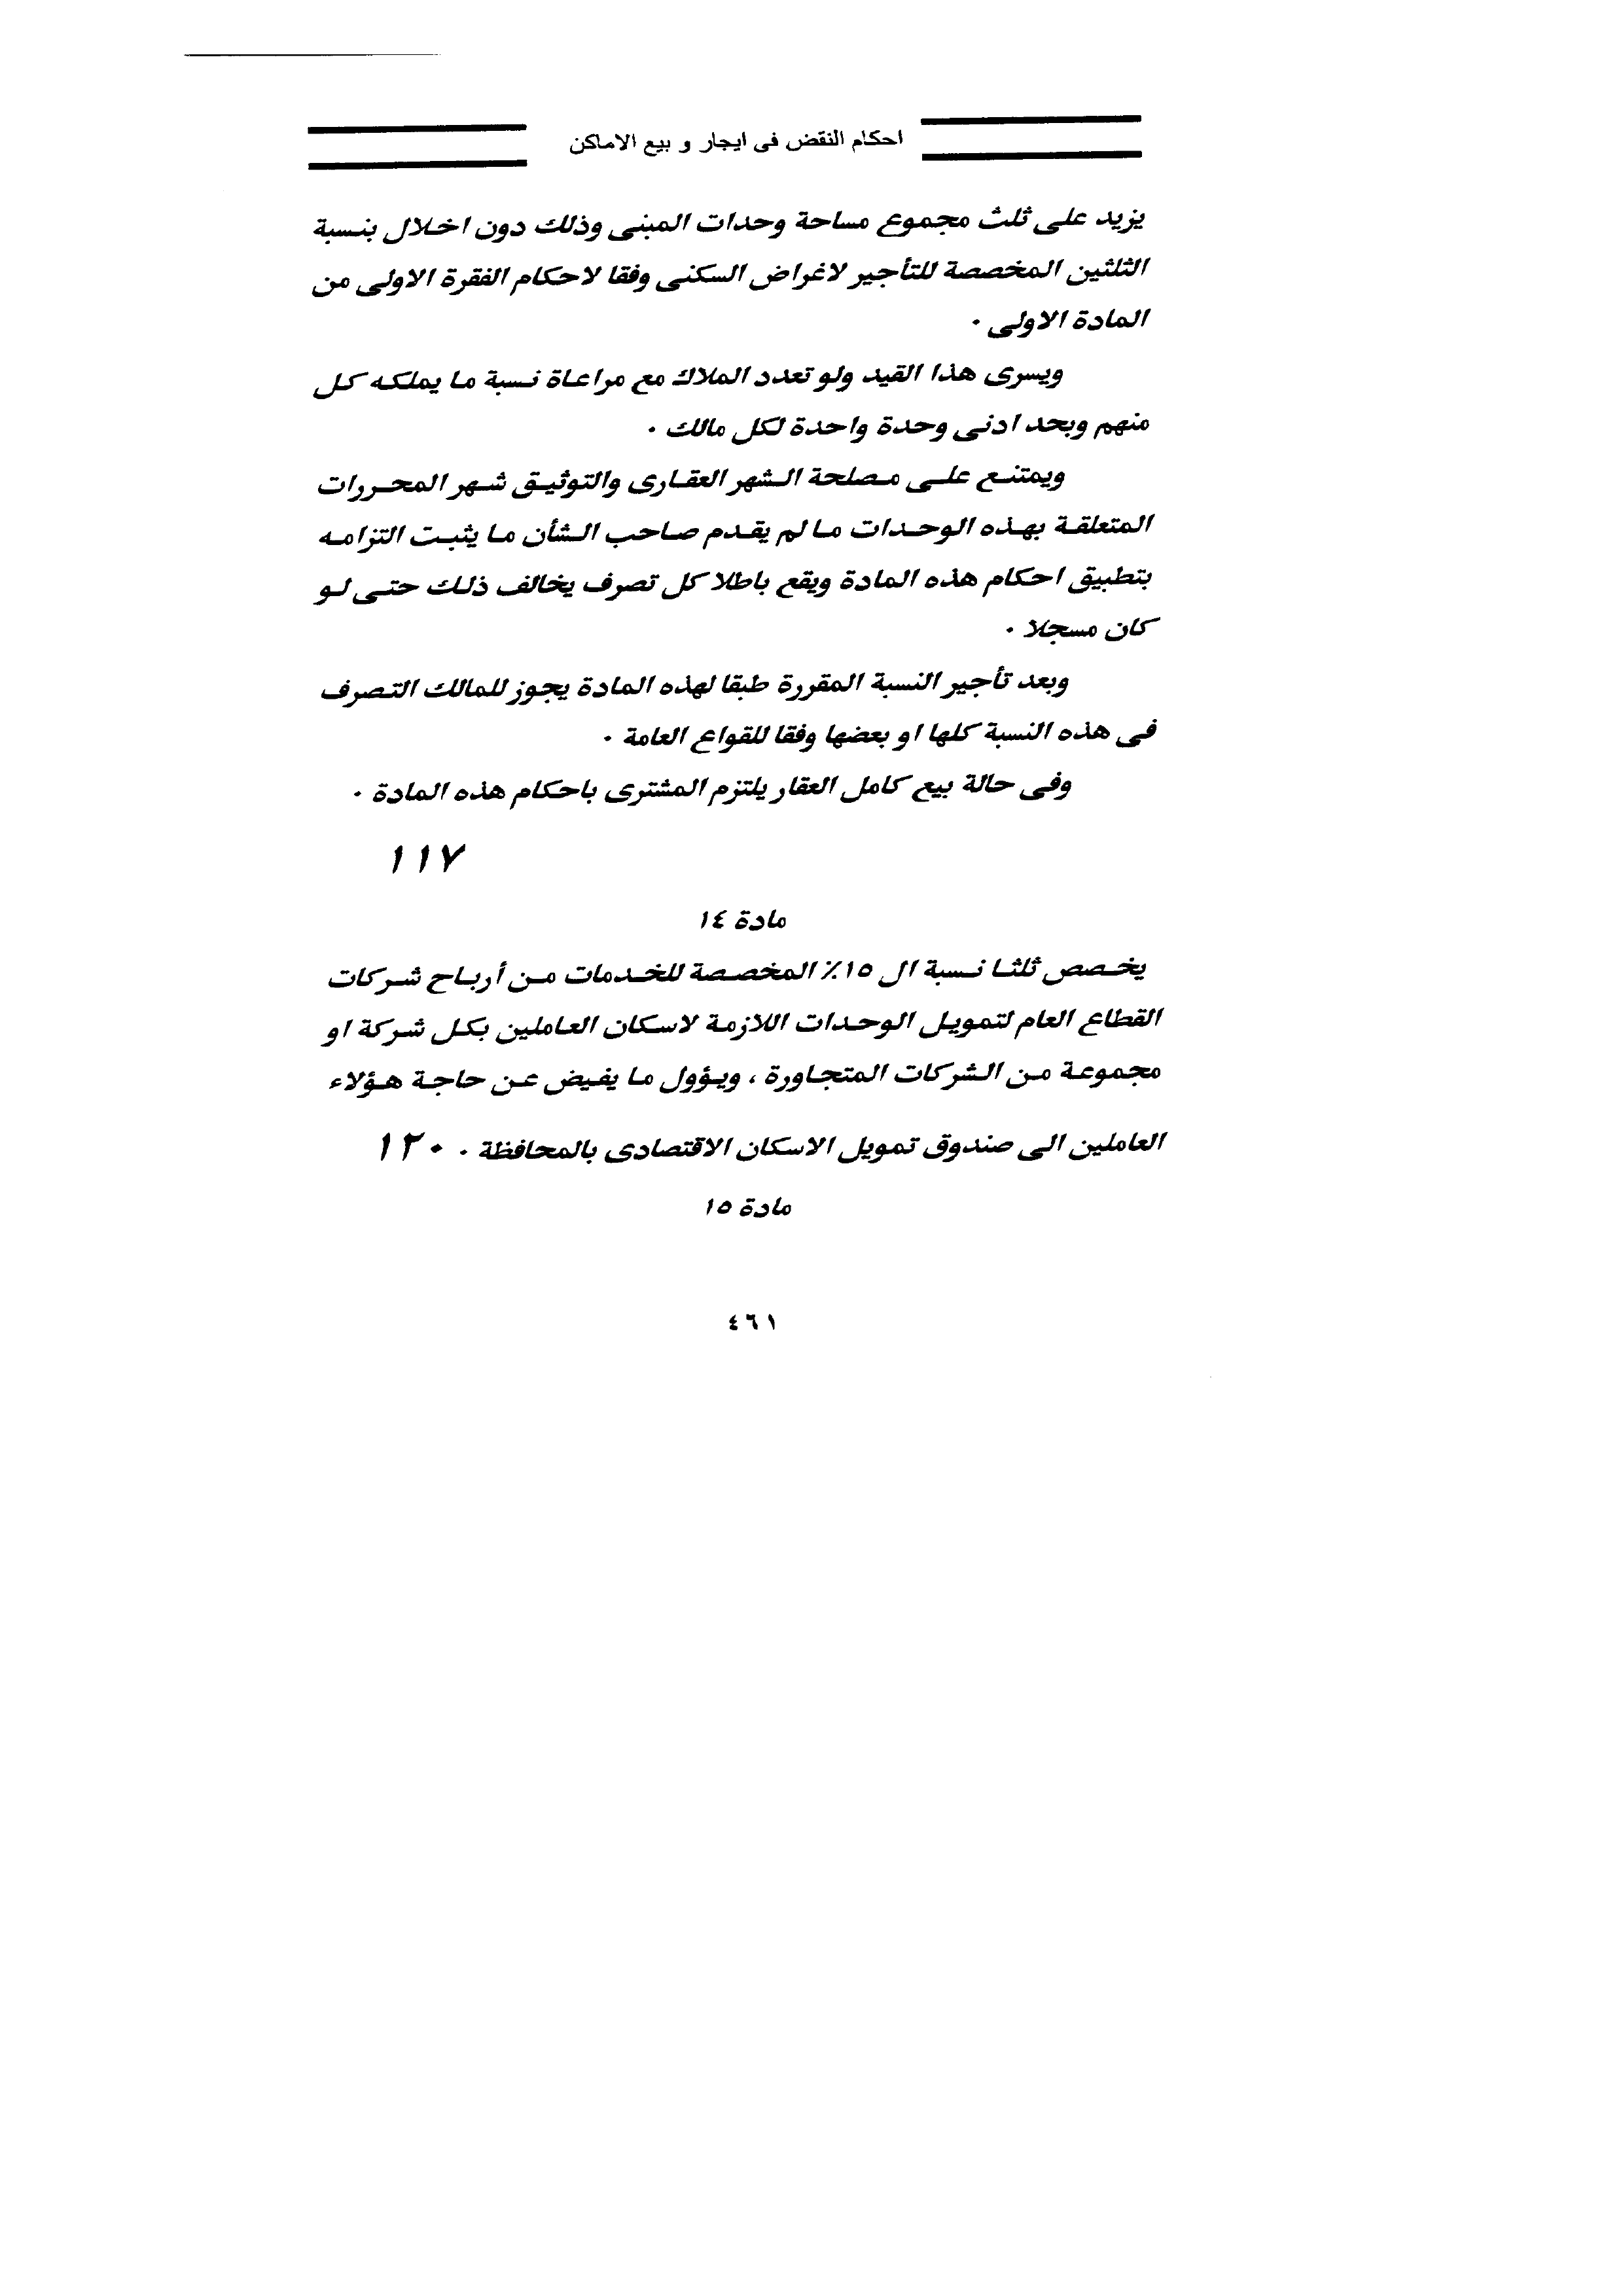 احكام النقض فى ايجار و بيع الاماكن
يزيد على ثلث مجموع مساحة وحدات المبنى وذلك دون اخلال بنسبة
الثلثين المخصصة للتأجير لاغراض السكنى وفقا لاحكام الفقرة الاولى من
المادة الاولى ٠
ويسرى هذا القيد ولو تعدد الملاك مع مراعاة نسبة ما يملكه كل
منهم وبحد ادنى وحدة واحدة لكل مالك ٠
ويمتنع على مصلحة الشهر العقارى والتوثيق شهر المحررات
المتعلقة بهذه الوحدات ما لم يقدم صاحب الشأن ما يثبت التزامه
بتطبيق احكام هذه المادة ويقع باطلا كل تصرف يخالف ذلك حتى لو
كان مسجلا ٠
وبعد تأجير النسبة المقررة طبقا لهذه المادة يجوز للمالك التصرف
فى هذه النسبة كلها او بعضها وفقا للقواع العامة ٠
وفى حالة بيع كامل العقار يلتزم المشترى باحكام هذه المادة ٠
١١٧
مادة ١٤
يخصص ثلثا نسبة ال ١٥٪ المخصصة للخدمات من أرباح شركات
القطاع العام لتمويل الوحدات اللازمة لاسكان العاملين بكل شركة او
مجموعة من الشركات المتجاورة ، ويؤول ما يفيض عن حاجة هؤلاء
العاملين الى صندوق تمويل الاسكان الاقتصادى بالمحافظة ٠ ١٢٠
مادة ١٥
٤٦١